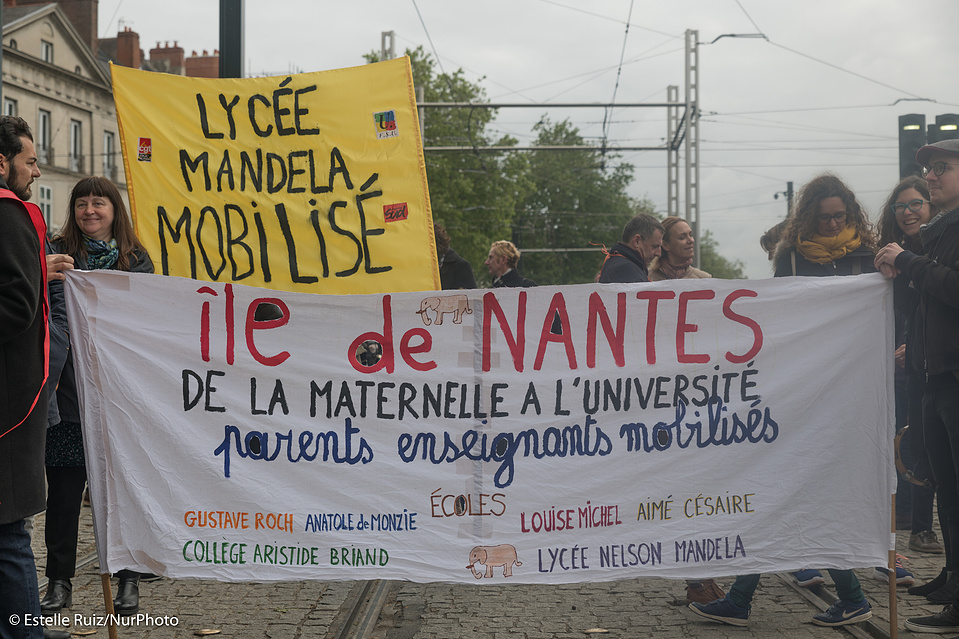 LYCÉE
MANDELA
MOBILISÉ
cgt
Sud
île de NANTES
DE LA MATERNELLE A L'UNIVERSITÉ
parents enseignants mobilisés
ÉCOLES
GUSTAVE ROCH ANATOLE de MONZIE LOUISE MICHEL AIMÉ CÉSAIRE
COLLEGE ARISTIDE BRIAND LYCÉE NELSON MANDELA
© Estelle Ruiz/NurPhoto